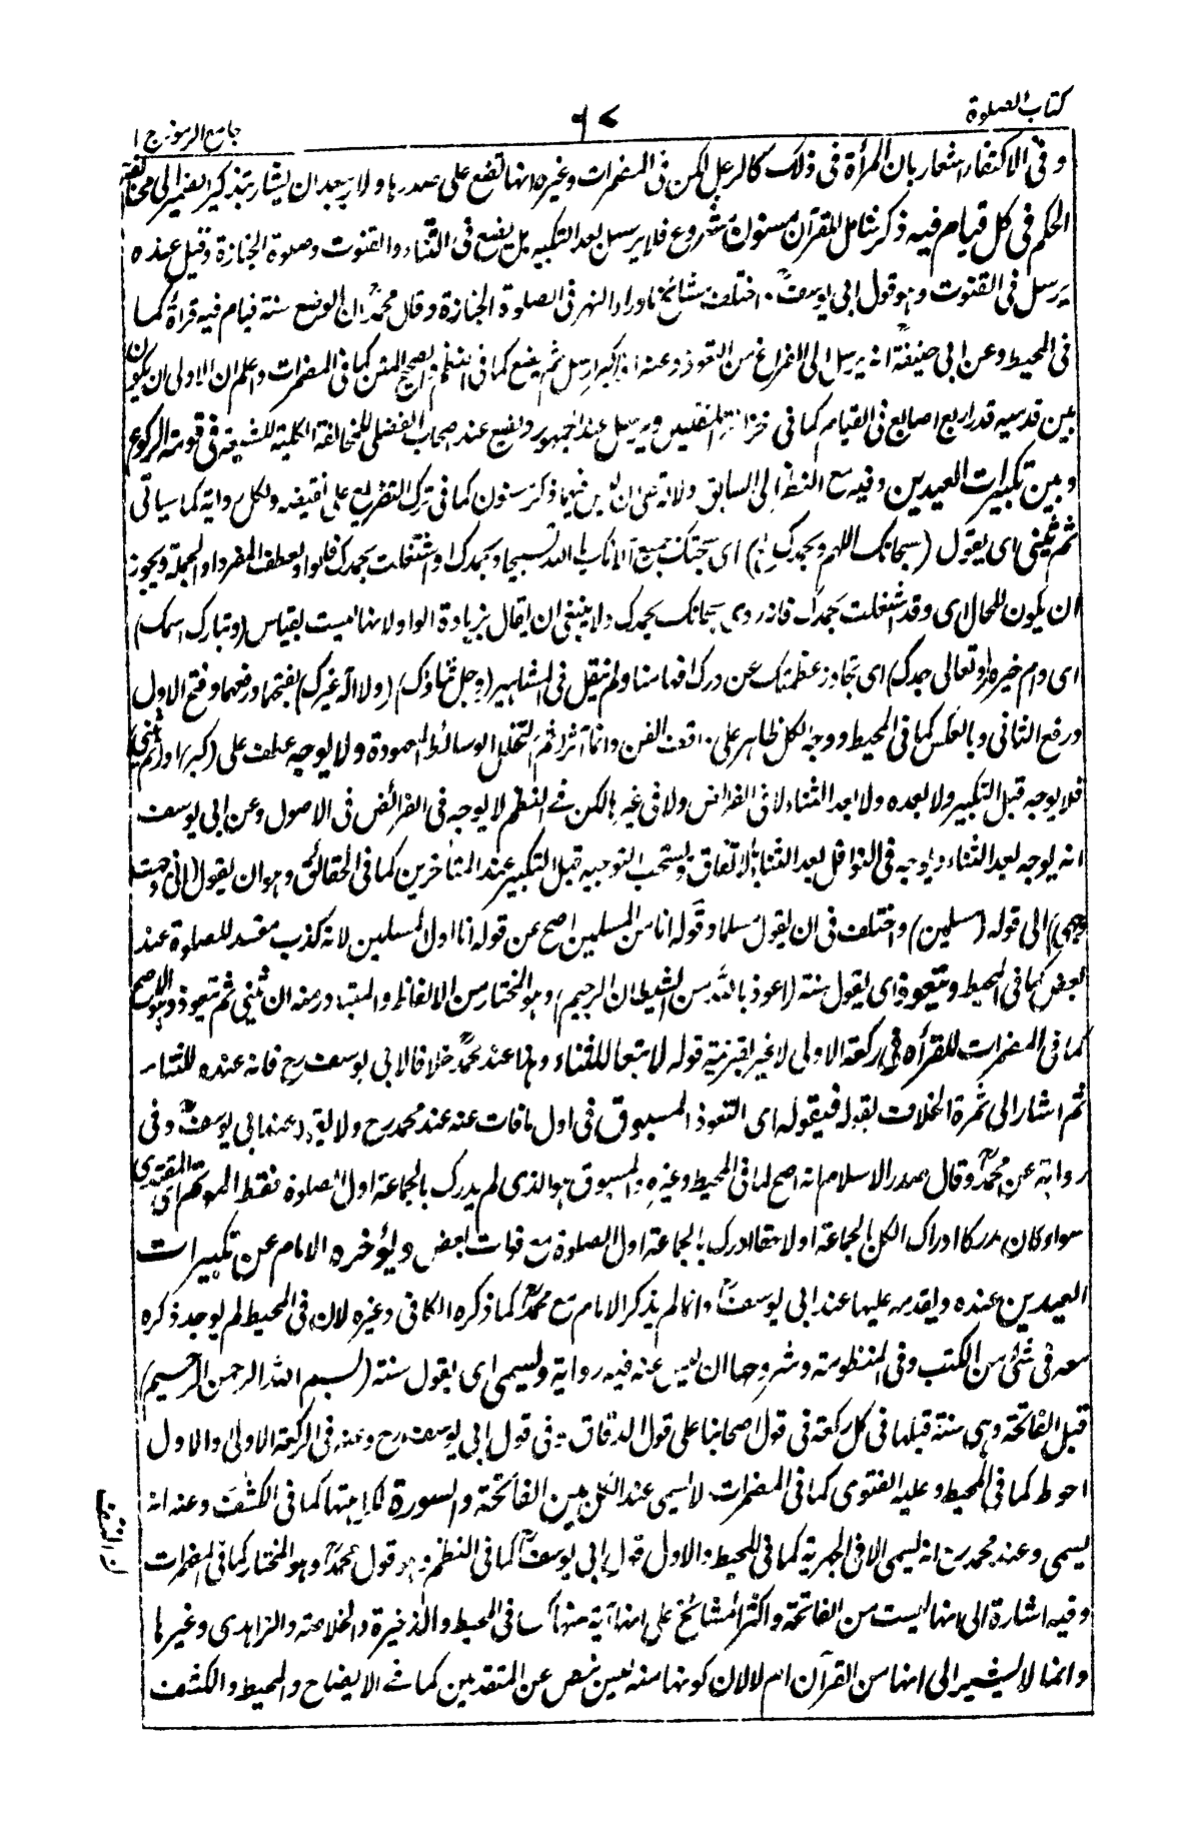 كتاب الصلوة
٦٧
جامع الرموز ج ا
وفى الاكتفاء اشعار بان المرأة فى ذلك كالرجل لكن فى المضمرات وغيره انها تضع على صدرها ولا يبعد ان يشار بتذكير الضمير الى مخالفتها
الحكم فى كل قيام فيه ذكر شامل للقرآن مسنون مشروع فلا يرسل بعد التكبير بل يضع فى الثناء والقنوت وصلوة الجنازة وقيل عنده
يرسل فى القنوت وهو قول ابى يوسف اختلف مشائخ ماوراء النهر فى الصلوة الجنازة وقال محمد ان الوضع سنة قيام فيه قراءة كما
فى المحيط وعن ابى حنيفة انه يرسل الى الفراغ من التعوذ وعنه اذا كبر ارسل ثم يضع كما فى النظم والصحيح المتن كما فى المضمرات واعلم ان الاولى ان يكون
بين قدميه قدر اربع اصابع فى القيام كما فى خزانة المفتيين ويرسل عند الجمهور ويضع عند اصحاب الفضلى للمخالفة الكلية للشيعة فى قومة الركوع
وبين تكبيرات العيدين وفيه مع النظر الى السابق دلالة على ان ليس فيهما ذكر مسنون كما فى ترك التفريع على نقيضه ولكل رواية كما سياتى
ثم يثنى اى يقول (سبحانك اللهم وبحمدك) اى سبحتك بجميع آلائك يا الله تسبيحا وبحمدك او اشتغلت بحمدك فلو او لعطف المفرد او الجملة ويجوز
ان يكون للحال اى وقد اشتغلت بحمدك فانه روى سبحانك بحمدك ولا ينبغى ان يقال بزيادة الواو لانها ليست بقياس (وتبارك اسمك)
اى دام خيره (وتعالى جدك) اى تجاوز عظمتك عن درك افهامنا ولم ينقل فى المشاهير (وجل ثناؤك) (ولا اله غيرك) بفتحهما ورفعهما وفتح الاول
ورفع الثانى وبالعكس كما فى المحيط ووجه الكل ظاهر على واقف الفن وانما آثر ثم لتخلل الوسائط المعهودة ولا يوجه عطف على (كبر) او (ثم يثنى)
فلا يوجه قبل التكبير ولا بعده ولا بعد الثناء لا فى الفرائض ولا فى غيرها لكن فى النظم لا يوجه فى الفرائض فى الاصول وعن ابى يوسف
انه يوجه بعد الثناء ويوجه فى النوافل بعد الثناء بالاتفاق ويستحب التوجيه قبل التكبير عند المتأخرين كما فى الحقائق وهو ان يقول (انى وجهت
وجهى) الى قوله (مسلمين) واختلف فى ان يقول مسلما وقوله انا من المسلمين اصح عن قوله انا اول المسلمين لانه كذب مفسد للصلوة عند
البعض كما فى المحيط ويتعوذ اى يقول سنة (اعوذ بالله من الشيطان الرجيم) وهو المختار من الالفاظ والمتبادر منه ان يثنى ثم يتعوذ وهو الاصح
كما فى المضمرات للقرأة فى ركعة الاولى لا غير بقرينة قوله لا تبعا للثناء وهما عند محمد خلافا لابى يوسف رح فانه عنده للثناء
ثم اشار الى ثمرة الخلاف بقوله فيقوله اى التعوذ المسبوق فى اول ما فات عنه عند محمد رح ولا يتعوذ عند ابى يوسف وفى
رواية عن محمد وقال صدر الاسلام انه اصح لما فى المحيط وغيره والمسبوق هو الذى لم يدرك بالجماعة اول الصلوة فقط لا المؤتم اى المقتدى
سواء كان مدركا ادراك الكل بالجماعة او لاحقا ادرك بالجماعة اول الصلوة مع فوات البعض ويؤخره الامام عن تكبيرات
العيدين عنده ويقدمه عليها عند ابى يوسف وانما لم يذكر الامام مع محمد كما ذكره الكافى وغيره لان فى المحيط لم يوجد ذكره
معه فى شئ من الكتب وفى المنظومة وشروحها ان ليس عنه فيه رواية ويسمى اى يقول سنة (بسم الله الرحمن الرحيم)
قبل الفاتحة وهى سنة قبلها فى كل ركعة فى قول اصحابنا على قول الدقاق وفى قول ابى يوسف رح وعنه فى الركعة الاولى والاول
احوط كما فى المحيط وعليه الفتوى كما فى المضمرات لا يسمى عند الكل بين الفاتحة والسورة لكراهيتها كما فى الكشف وعنه انه
يسمى وعند محمد رح انه يسمى الا فى الجهرية كما فى المحيط والاول قول ابى يوسف كما فى النظم وهو قول محمد وهو المختار كما فى المضمرات
وفيه اشارة الى انها ليست من الفاتحة واكثر المشائخ على انها آية منها كما فى المحيط والذخيرة والخلاصة والزاهدى وغيرها
وانما لا يشير الى انها من القرآن ام لا لان كونها منه ليس بنص عن المتقدمين كما فى الايضاح والمحيط والكشف